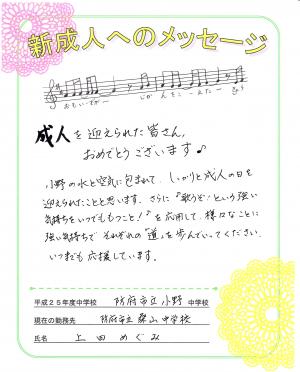 新成人へのメッセージ
おもいでが
成人を迎えられた皆さん、
おめでとうございます♪
小野の水と空気に包まれて、しっかりと成人の日を
迎えられたことと思います。さらに『歌うぞ!という強い
気持ちをいつでももつこと!』を応用して、様々なことに
強い気持ちで それぞれの「道」を歩んでいってください。
いつまでも応援しています。
平成25年度中学校 防府市立小野 中学校
現在の勤務先 防府市立桑山中学校
氏名 上田めぐみ